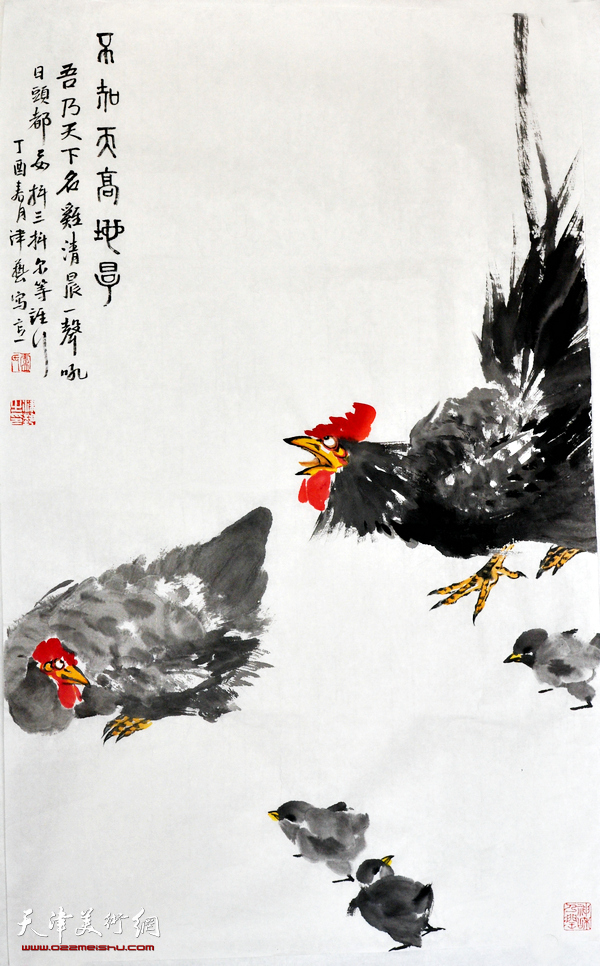 不知天高地厚
吾乃天下名雞清晨一聲吼
日頭都要抖三抖尔等誰行
丁酉春月津藝寫
天津美術網
www.022meishu.com